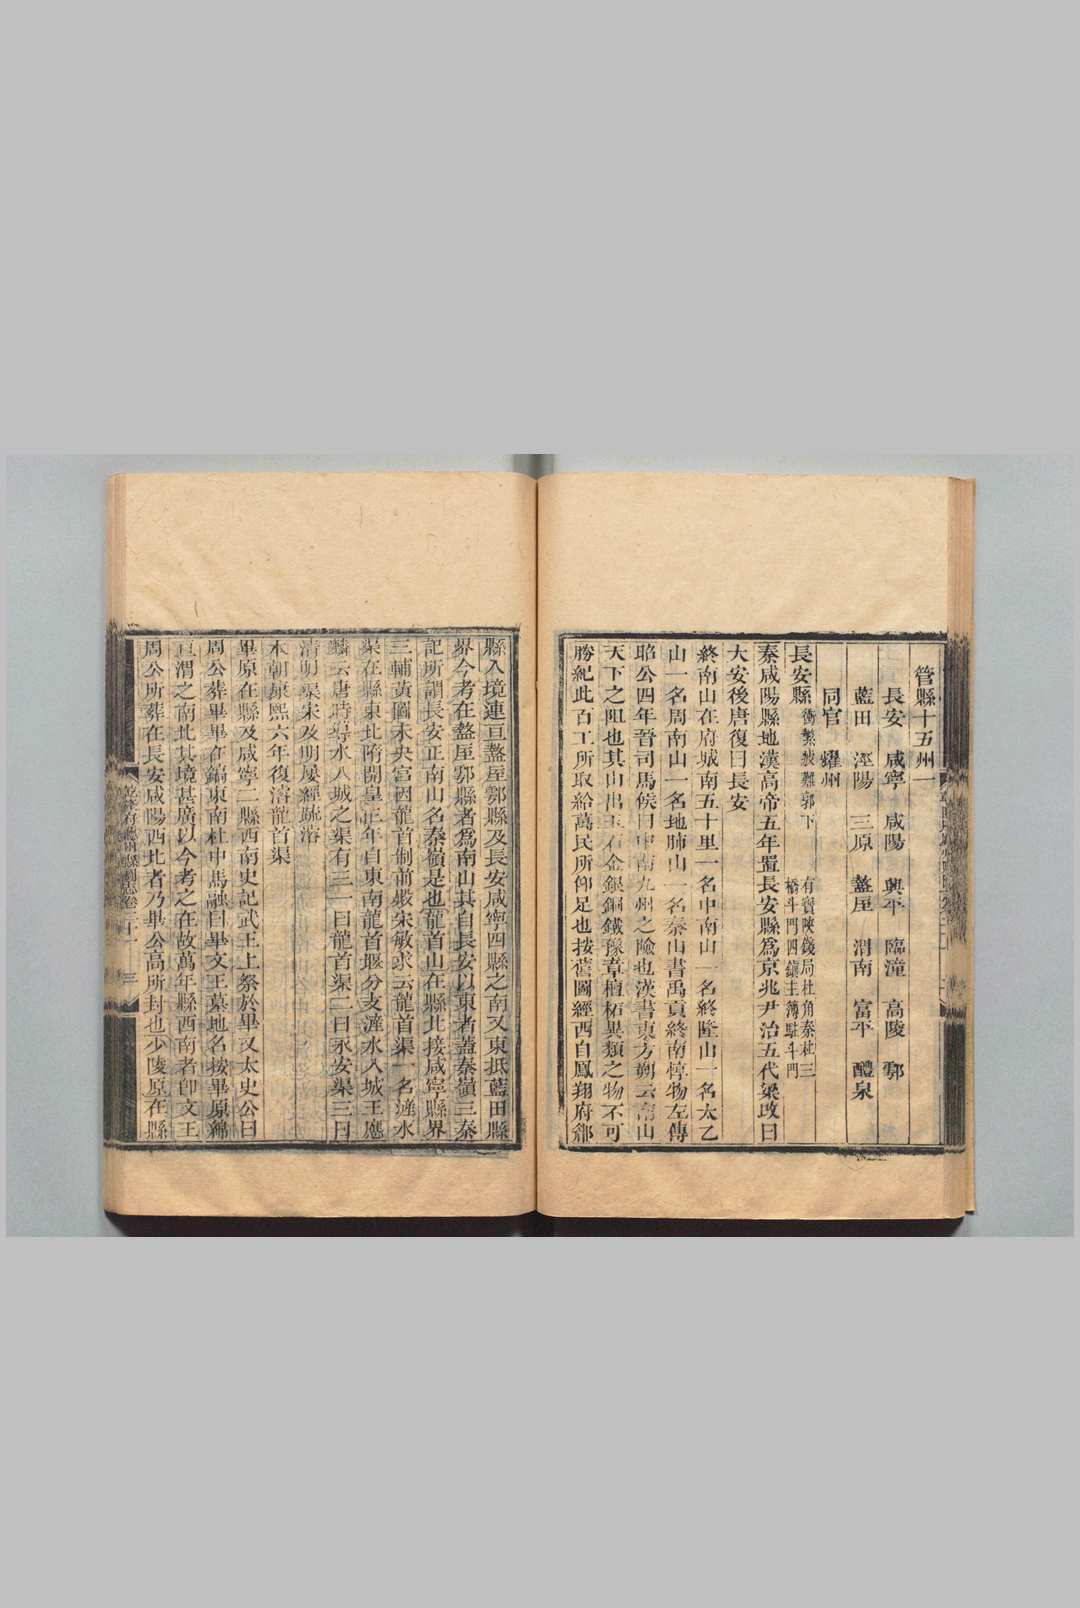 管縣十五州一
長安 咸寧 咸陽 興平 臨潼 高陵 鄠
藍田 涇陽 三原 盩厔 渭南 富平 醴泉
同官 耀州
長安縣 衝繁疲難郭下 有寶陝錢局杜角秦杜三
橋斗門四鎮主簿駐斗門
秦咸陽縣地漢高帝五年置長安縣爲京兆尹治五代梁改曰
大安後唐復曰長安
終南山在府城南五十里一名中南山一名終隆山一名太乙
山一名周南山一名地肺山一名秦山書禹貢終南惇物左傳
昭公四年晉司馬侯曰中南九州之險也漢書東方朔云南山
天下之阻也其山出玉石金銀銅鐵豫章檀柘異類之物不可
勝紀此百工所取給萬民所仰足也按舊圖經西自鳳翔府郿
縣入境連亘盩厔鄠縣及長安咸寧四縣之南又東抵藍田縣
界今考在盩厔鄠縣者爲南山其自長安以東者蓋秦嶺三秦
記所謂長安正南山名秦嶺是也龍首山在縣北接咸寧縣界
三輔黃圖未央宮因龍首制前殿宋敏求云龍首渠一名滻水
渠在縣東北隋開皇三年自東南龍首堰分支滻水入城王應
麟云唐時導水入城之渠有三一曰龍首渠二曰永安渠三曰
清明渠宋及明屢經疏濬
本朝康熙六年復濬龍首渠
畢原在縣及咸寧二縣西南史記武王上祭於畢又太史公曰
周公葬畢畢在鎬東南杜中馬融曰畢文王墓地名按畢原綿
亘渭之南北其境甚廣以今考之在故萬年縣西南者卽文王
周公所葬在長安咸陽西北者乃畢公高所封也少陵原在縣
乾隆府廳州縣圖志卷二十一 三